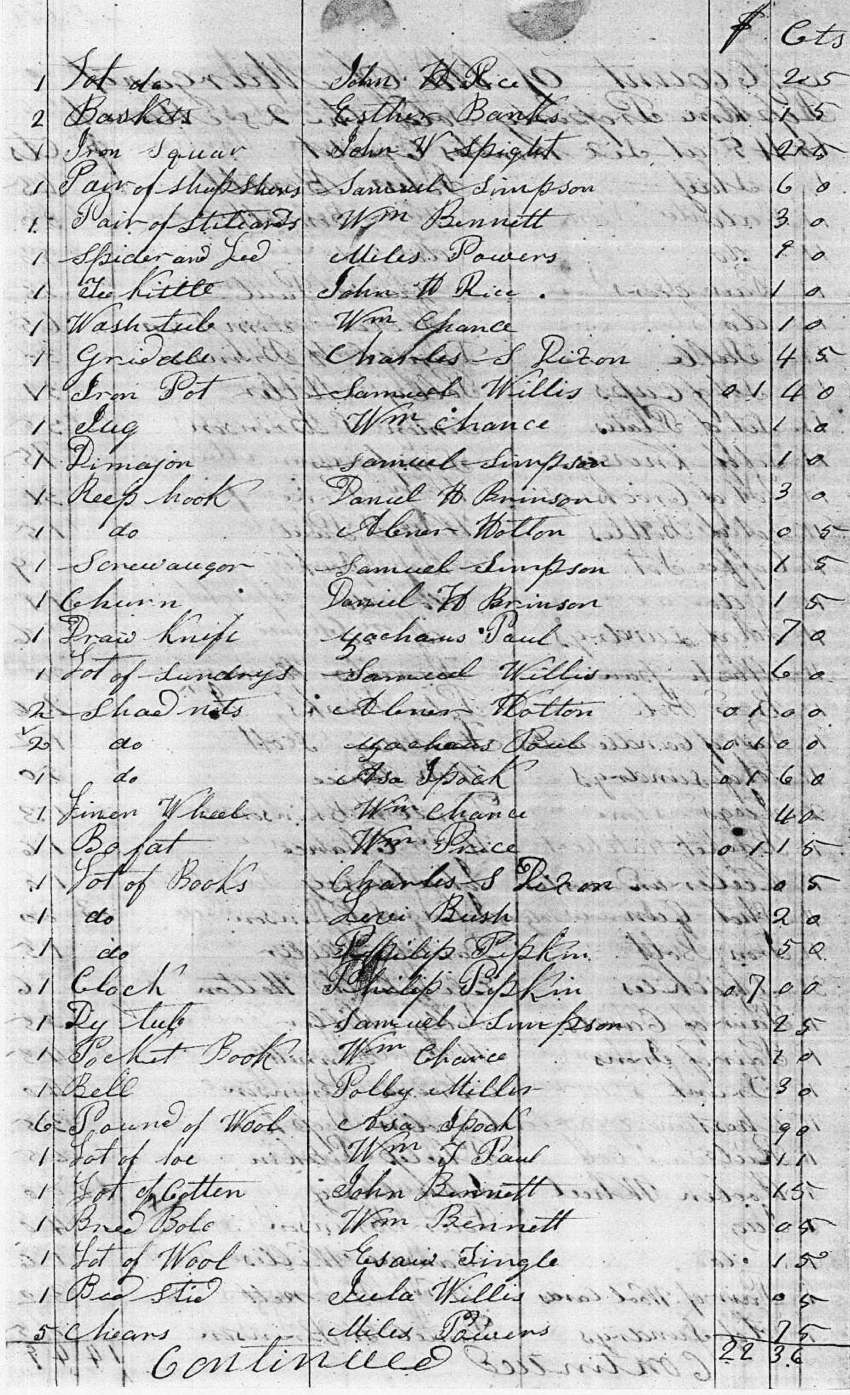 $ Cts
1 Lot do John H Rice 25
2 Baskets Esther Banks 15
Iron Squar John V Spight 25
1 Pair of Shep Shers Samuel Simpson 60
1 Pair of Stiliards Wm Bennett 30
1 Spider and Led Miles Powers 90
1 Te Kittle John H Rice 10
1 Wash tub Wm Chance 10
1 Griddle Charles S Dixon 45
1 Iron Pot Samuel Willis 01 40
1 Jug Wm Chance 10
1 Dimajon Samuel Simpson 10
1 Reep hook Daniel H Brinson 30
1 do Abner Hotton 05
1 Screw augor Samuel Simpson 15
1 Churn Daniel H Brinson 15
1 Draw Knife Zachaus Paul 70
1 Lot of Sundrys Samuel Willis 60
2 Shad nets Abner Hotton 01 00
2 do Zachaus Paul 01 00
1 do Asa Ipock 01 60
1 Linen Wheel Wm Chance 40
1 Bofat Wm Price 01 15
1 Lot of Books Charles S Dixon 05
1 do Levi Bush 20
1 do Philip Pipkin 50
1 Clock Philip Pipkin 07 00
1 Dy tub Samuel Simpson 25
1 Pocket Book Wm Chance 20
1 Bell Polly Miller 30
6 Pound of Wool Asa Ipock 90
1 Lot of toe Wm F Paul 11
1 Lot of Cotten John Bennett 15
1 Bred Bole Wm Bennett 05
1 Lot of Wool Esaw Tingle 150
1 Bed Sted Willis 05
5 Chears Miles Powers 75
Continued 22 36